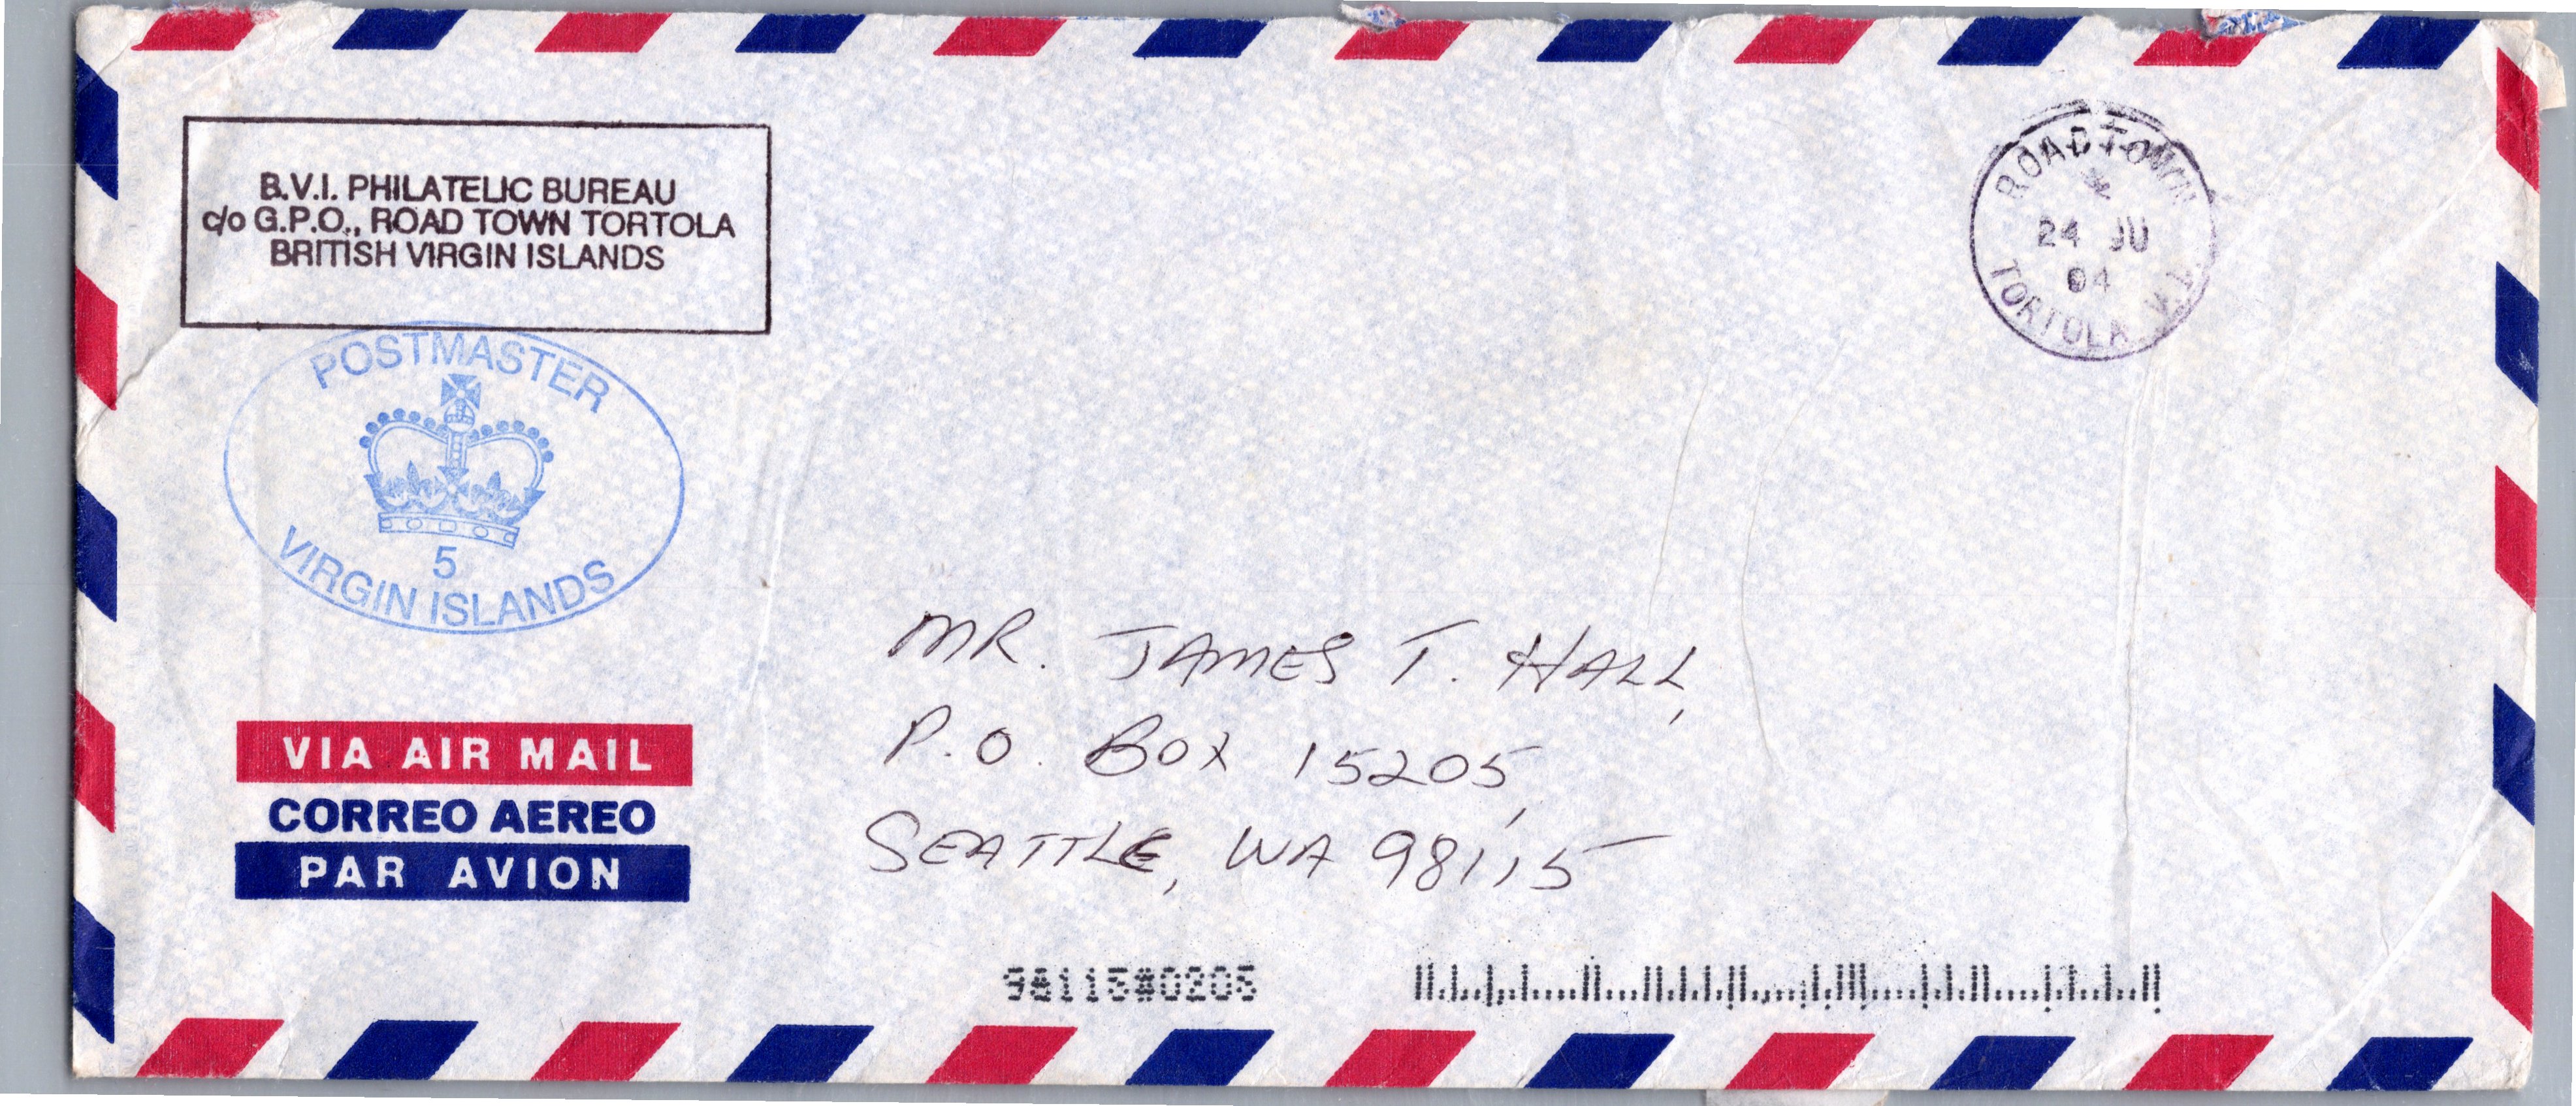 B.V.I. PHILATELIC BUREAU
c/o G.P.O., ROAD TOWN TORTOLA
BRITISH VIRGIN ISLANDS
ROAD TOWN
24 JU
04
TORTOLA V.I.
POSTMASTER
5
VIRGIN ISLANDS
MR. JAMES T. HALL,
P.O. BOX 15205,
SEATTLE, WA 98115
VIA AIR MAIL
CORREO AEREO
PAR AVION
98115#0205